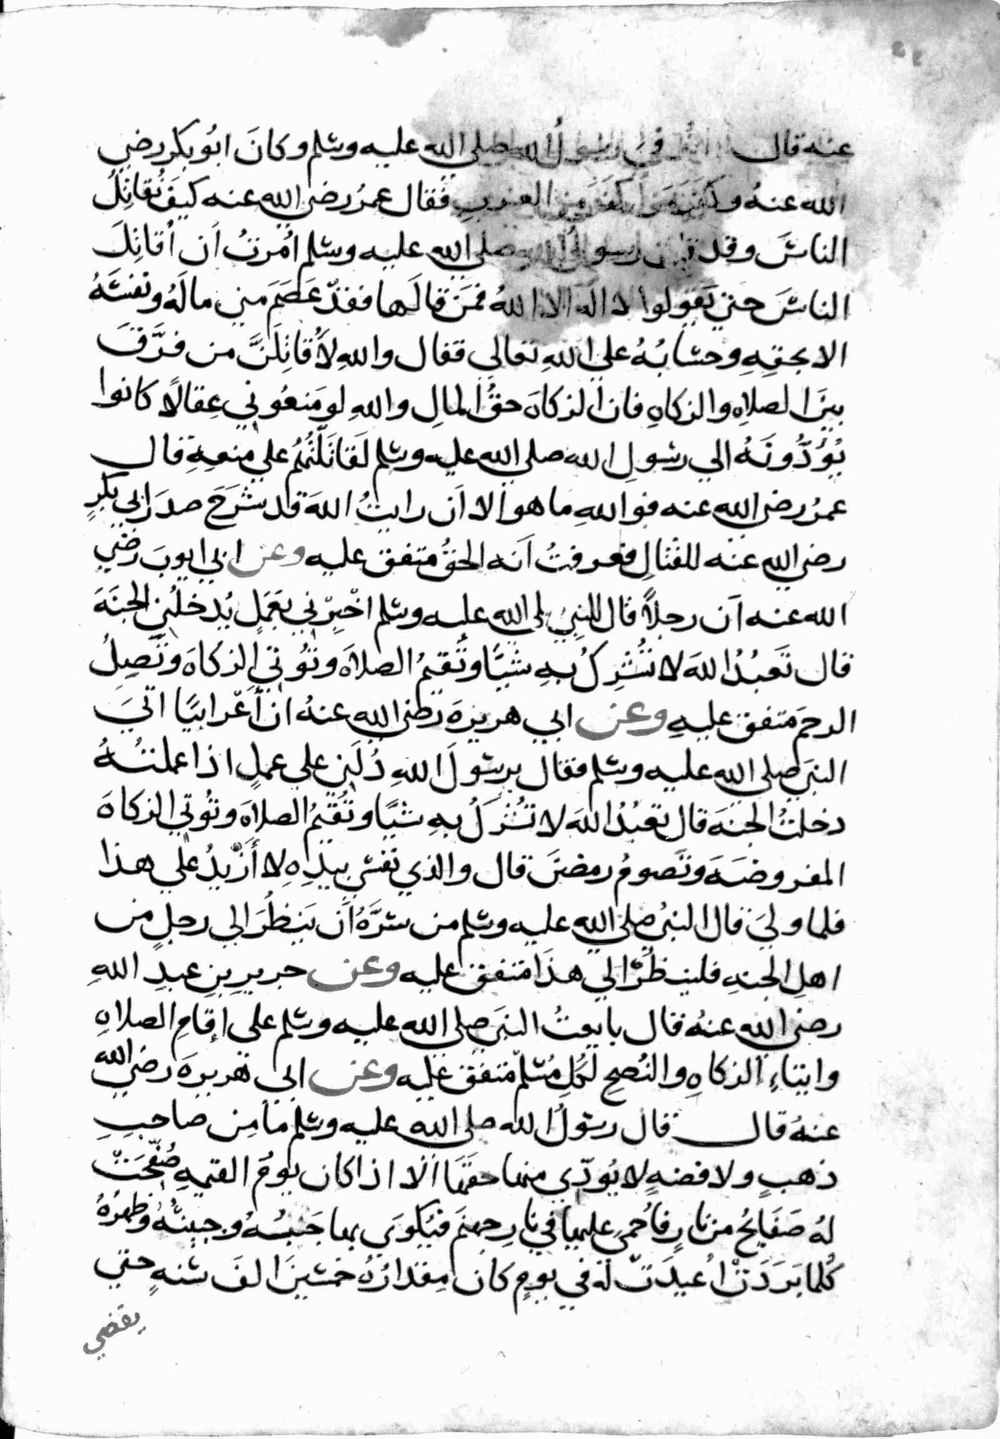 عنه قال لما توفي رسول الله صلي الله عليه وسلم وكان ابو بكر رضي
الله عنه وكفر من كفر من العرب فقال عمر رضي الله عنه كيف تقاتل
الناس وقد قال رسول الله صلي الله عليه وسلم امرت أن أقاتل
الناس حتي يقولوا لا اله الا الله فمن قالها فقد عصم مني ماله ونفسه
الا بحقه وحسابه علي الله تعالي فقال والله لأقاتلن من فرق
بين الصلاه والزكاه فان الزكاه حق المال والله لو منعوني عقالا كانوا
يؤدونه الي رسول الله صلي الله عليه وسلم لقاتلتهم علي منعه قال
عمر رضي الله عنه فوالله ما هو الا ان رايت الله قد شرح صدر ابي بكر
رضي الله عنه للقتال فعرفت انه الحق متفق عليه وعن ابي ايوب رضي
الله عنه ان رجلاً قال للنبي صلي الله عليه وسلم اخبرني بعمل يدخلني الجنه
قال تعبد الله لا تشرك به شيًا وتقيم الصلاه وتؤتي الزكاه وتصل
الرحم متفق عليه وعن ابي هريره رضي الله عنه ان أعرابيًا اتي
النبي صلي الله عليه وسلم فقال يرسول الله دلني علي عمل اذا عملته
دخلت الجنه قال تعبد الله لا تشرك به شيًا وتقيم الصلاه وتؤتي الزكاه
المفروضه وتصوم رمضن قال والذي نفسي بيده لا أزيد علي هذا
فلما ولي قال النبي صلي الله عليه وسلم من سره أن ينظر الي رجل من
اهل الجنه فلينظر الي هذا متفق عليه وعن جرير بن عبد الله
رضي الله عنه قال بايعت النبي صلي الله عليه وسلم علي إقام الصلاه
وايتاء الزكاه والنصح لكل مسلم متفق عليه وعن ابي هريره رضي الله
عنه قال قال رسول الله صلي الله عليه وسلم ما من صاحب
ذهب ولا فضه لا يودي منها حقها الا اذا كان يوم القيمه صفحت
له صفايح من نار فأحمي عليها في نار جهنم فيكوي بها جنبه وجبينه وظهره
كلما بردت أعيدت له في يوم كان مقداره خمسين الف سنه حتي
يقضي